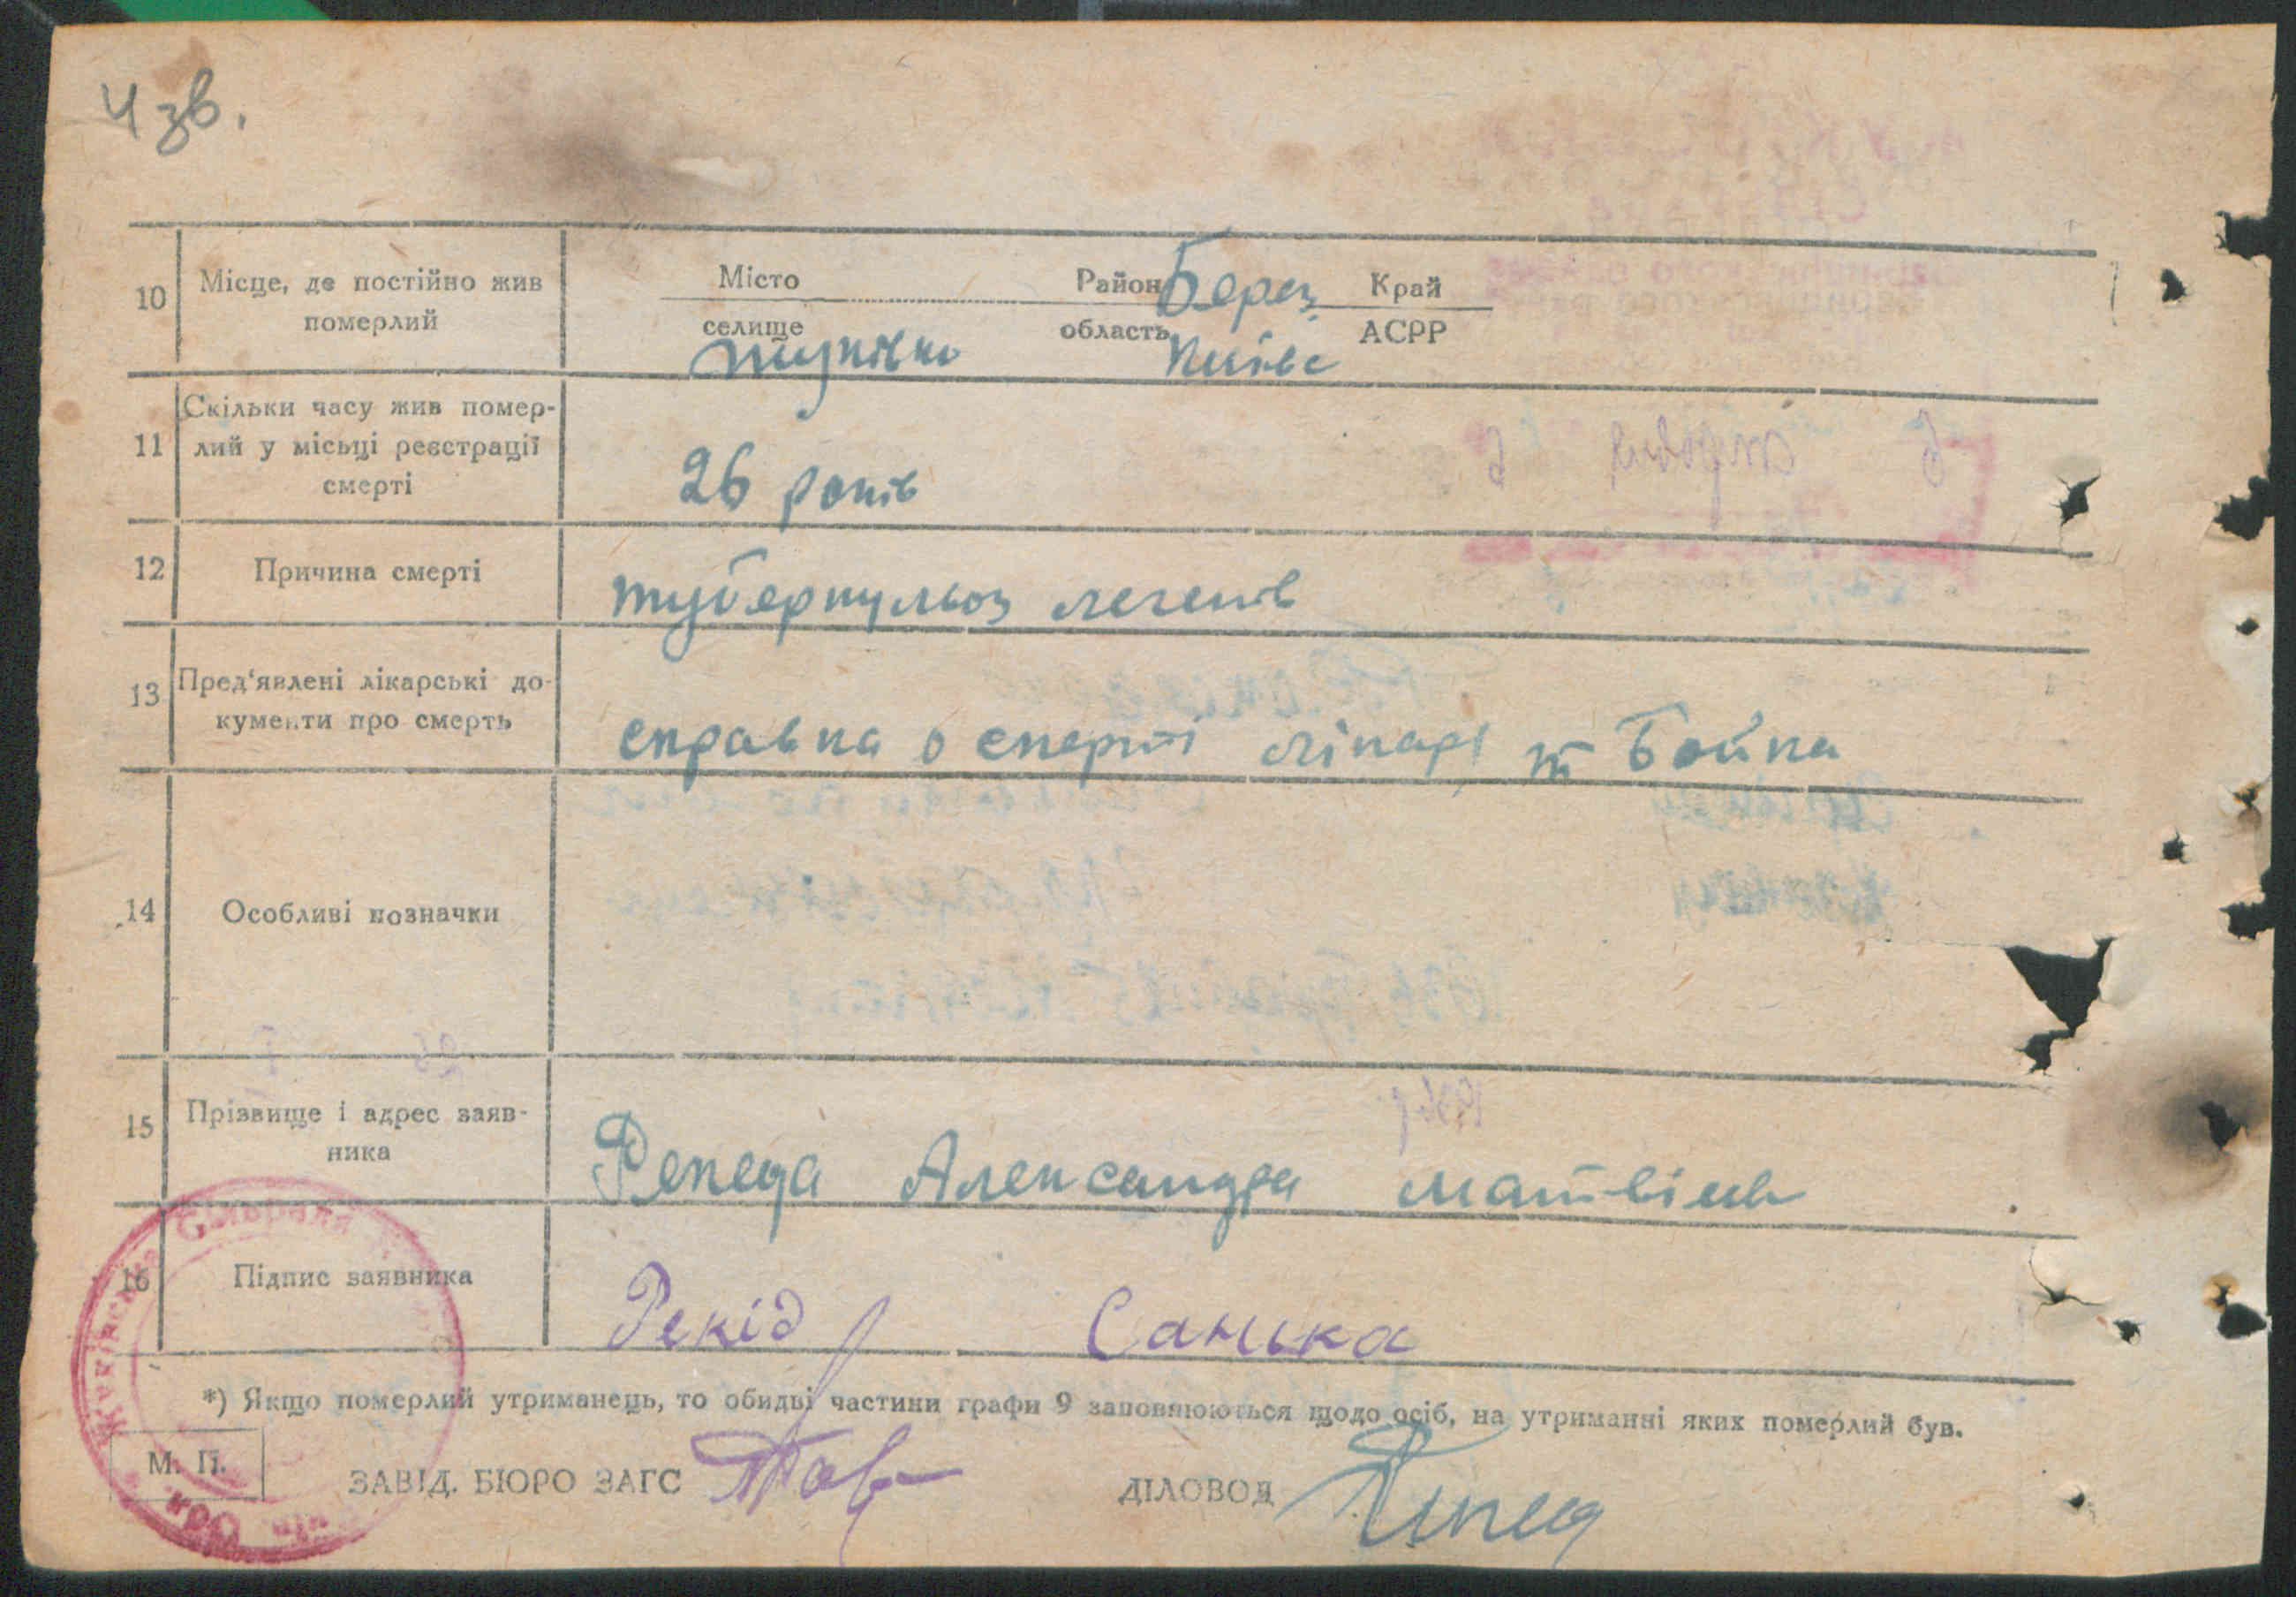 4 зв.
10 Місце, де постійно жив померлий
Місто Район Берез Край
селище область АСРР
Жуківка Київс
11 Скільки часу жив помер-
лий у місьці реєстрації
смерті
26 років
12 Причина смерті
туберкульоз легенів
13 Пред'явлені лікарські до-
кументи про смерть
справка о смерті лікаря т Бойка
14 Особливі позначки
15 Прізвище і адрес заяв-
ника
Репеда Александра
16 Підпис заявника
Санька
*) Якщо померлий утриманець, то обидві частини графи 9 заповнюються щодо осіб, на утриманні яких померлий був.
М. П.
ЗАВІД. БЮРО ЗАГС
ДІЛОВОД
Сільрада